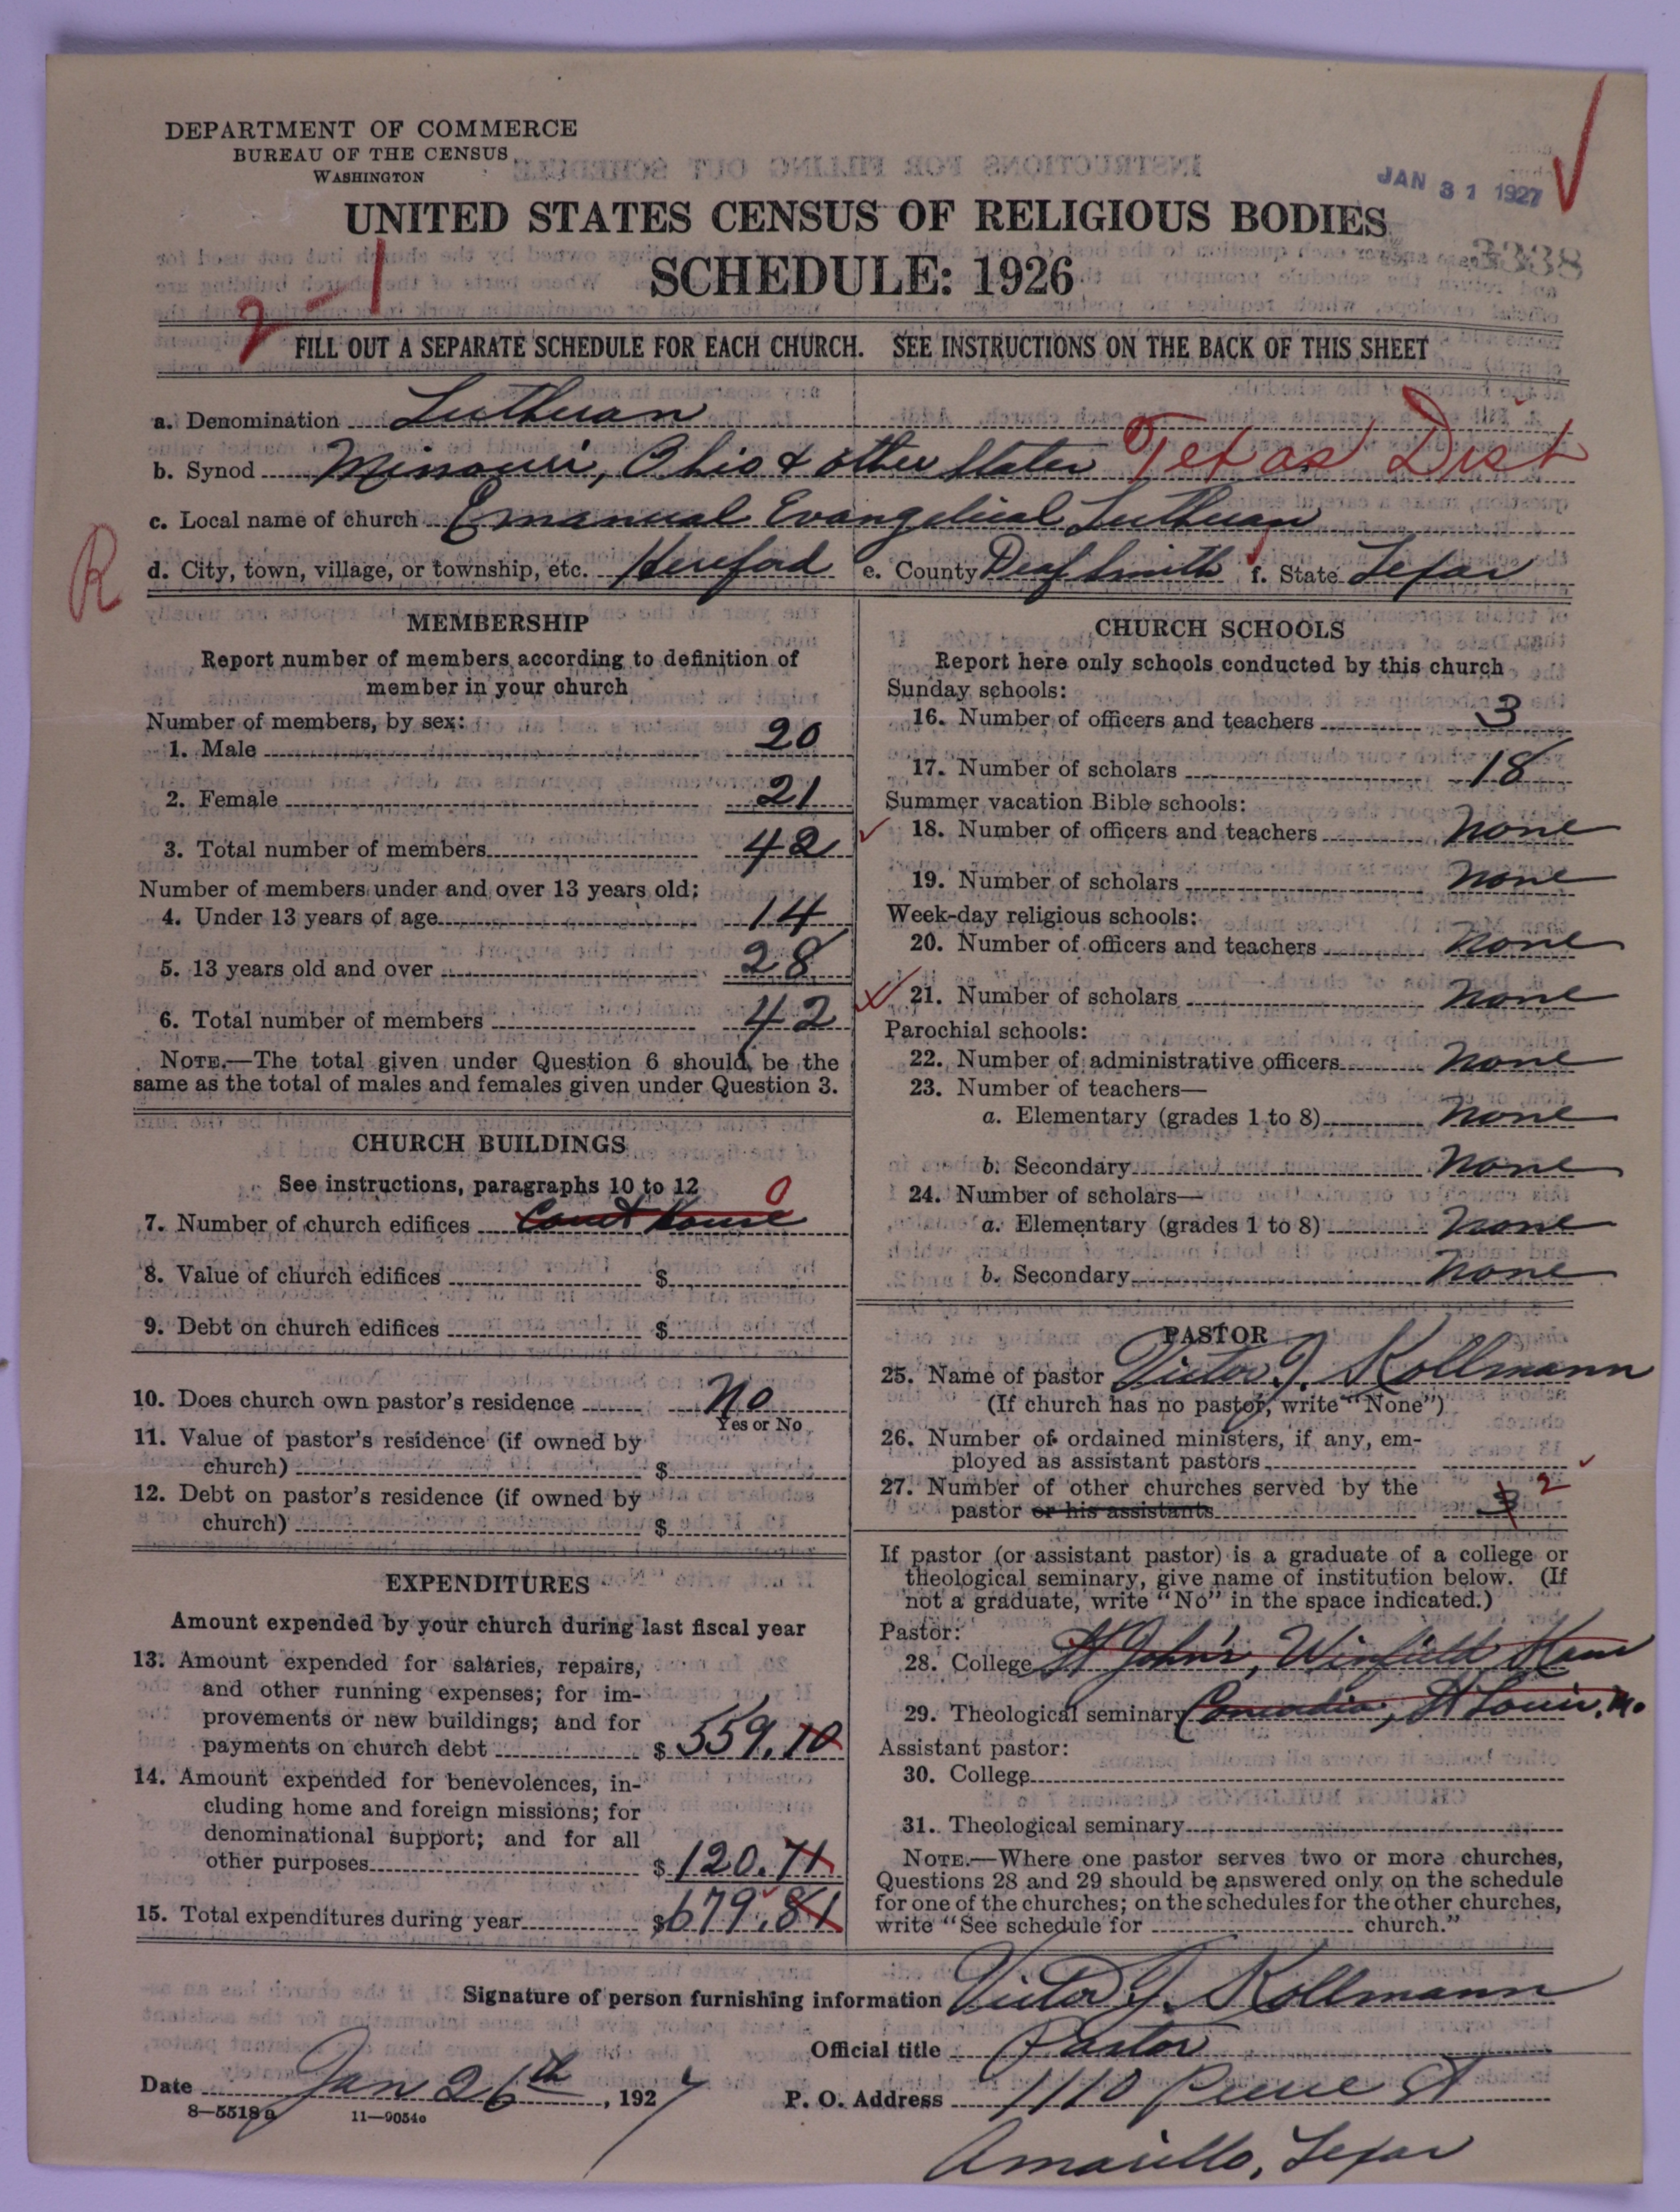 DEPARTMENT OF COMMERCE
BUREAU OF THE CENSUS
WASHINGTON
JAN 31 1927
UNITED STATES CENSUS OF RELIGIOUS BODIES
SCHEDULE: 1926
3338
2-1
FILL OUT A SEPARATE SCHEDULE FOR EACH CHURCH. SEE INSTRUCTIONS ON THE BACK OF THIS SHEET
a. Denomination Lutheran
b. Synod Missouri, Ohio & other States Texas Dist
c. Local name of church Emanual Evangelical Lutheran
R
d. City, town, village, or township, etc. Hereford e. County Deaf Smith f. State Texas
MEMBERSHIP
Report number of members according to definition of
member in your church
Number of members, by sex:
1. Male 20
2. Female 21
3. Total number of members 42
Number of members under and over 13 years old:
4. Under 13 years of age 14
5. 13 years old and over 28
6. Total number of members 42
NOTE.—The total given under Question 6 should be the
same as the total of males and females given under Question 3.
CHURCH BUILDINGS
See instructions, paragraphs 10 to 12
7. Number of church edifices Court House 0
8. Value of church edifices $
9. Debt on church edifices $
10. Does church own pastor's residence No
Yes or No
11. Value of pastor's residence (if owned by
church) $
12. Debt on pastor's residence (if owned by
church) $
EXPENDITURES
Amount expended by your church during last fiscal year
13. Amount expended for salaries, repairs,
and other running expenses; for im-
provements or new buildings; and for
payments on church debt $ 559.10
14. Amount expended for benevolences, in-
cluding home and foreign missions; for
denominational support; and for all
other purposes $ 120.71
15. Total expenditures during year $ 679.81
CHURCH SCHOOLS
Report here only schools conducted by this church
Sunday schools:
16. Number of officers and teachers 3
17. Number of scholars 18
Summer vacation Bible schools:
18. Number of officers and teachers None
19. Number of scholars None
Week-day religious schools:
20. Number of officers and teachers None
21. Number of scholars None
Parochial schools:
22. Number of administrative officers None
23. Number of teachers—
a. Elementary (grades 1 to 8) None
b. Secondary None
24. Number of scholars—
a. Elementary (grades 1 to 8) None
b. Secondary None
PASTOR
25. Name of pastor Victor J. Kollmann
(If church has no pastor, write "None")
26. Number of ordained ministers, if any, em-
ployed as assistant pastors
27. Number of other churches served by the
pastor or his assistants 3 2
If pastor (or assistant pastor) is a graduate of a college or
theological seminary, give name of institution below. (If
not a graduate, write "No" in the space indicated.)
Pastor:
28. College St John's, Winfield Kans
29. Theological seminary Concordia, St Louis, Mo.
Assistant pastor:
30. College
31. Theological seminary
NOTE.—Where one pastor serves two or more churches,
Questions 28 and 29 should be answered only on the schedule
for one of the churches; on the schedules for the other churches,
write "See schedule for church."
Signature of person furnishing information Victor J. Kollmann
Official title Pastor
Date Jan 26th, 1927 P. O. Address 1110 Pierce St
8-5518a 11-9054o
Amarillo, Texas